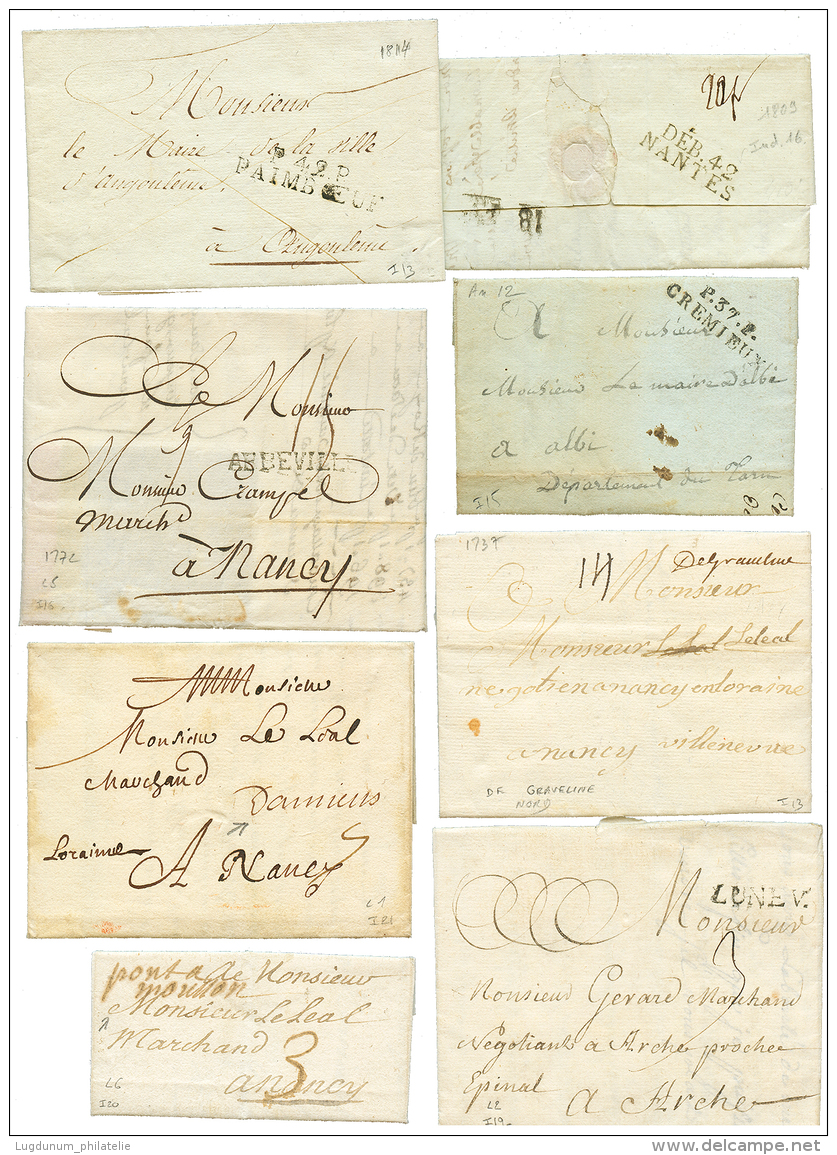 1814
Monsieur
le Maire de la ville
d'angouleme.
P.42.P.
PAIMBŒUF
à Angoulême
I13
1809
Ind. 16
DÉB. 42
NANTES
An 12
P.37.P.
CREMIEUX
A Monsieur
Monsieur Le maire Dalbi
a albi
Département du Tarn
I15
Monsieur
ABBEVILLE
Monsieur Crampel
March^d
à Nancy
1772
L5
I16
1737
14
De Graveline
Monsieur
Monsieur Leleal
negotien a nancy en loraine
a nancy villeneuve
DE GRAVELINE
NORD
I13
Monsieur
Monsieur Le Leal
Marchand
Damiens
Loraine
A Nancy
L1
I21
LUNEV.
Monsieur
3
Monsieur Gerard Marchand
Négotiant a Arche proche
Epinal
a Arche
L2
I19
pont a
mousson
de Monsieur
Monsieur Le Leal
Marchand
3
a nancy
L6
I20
Lugdunum_philatelie
delcampe.net